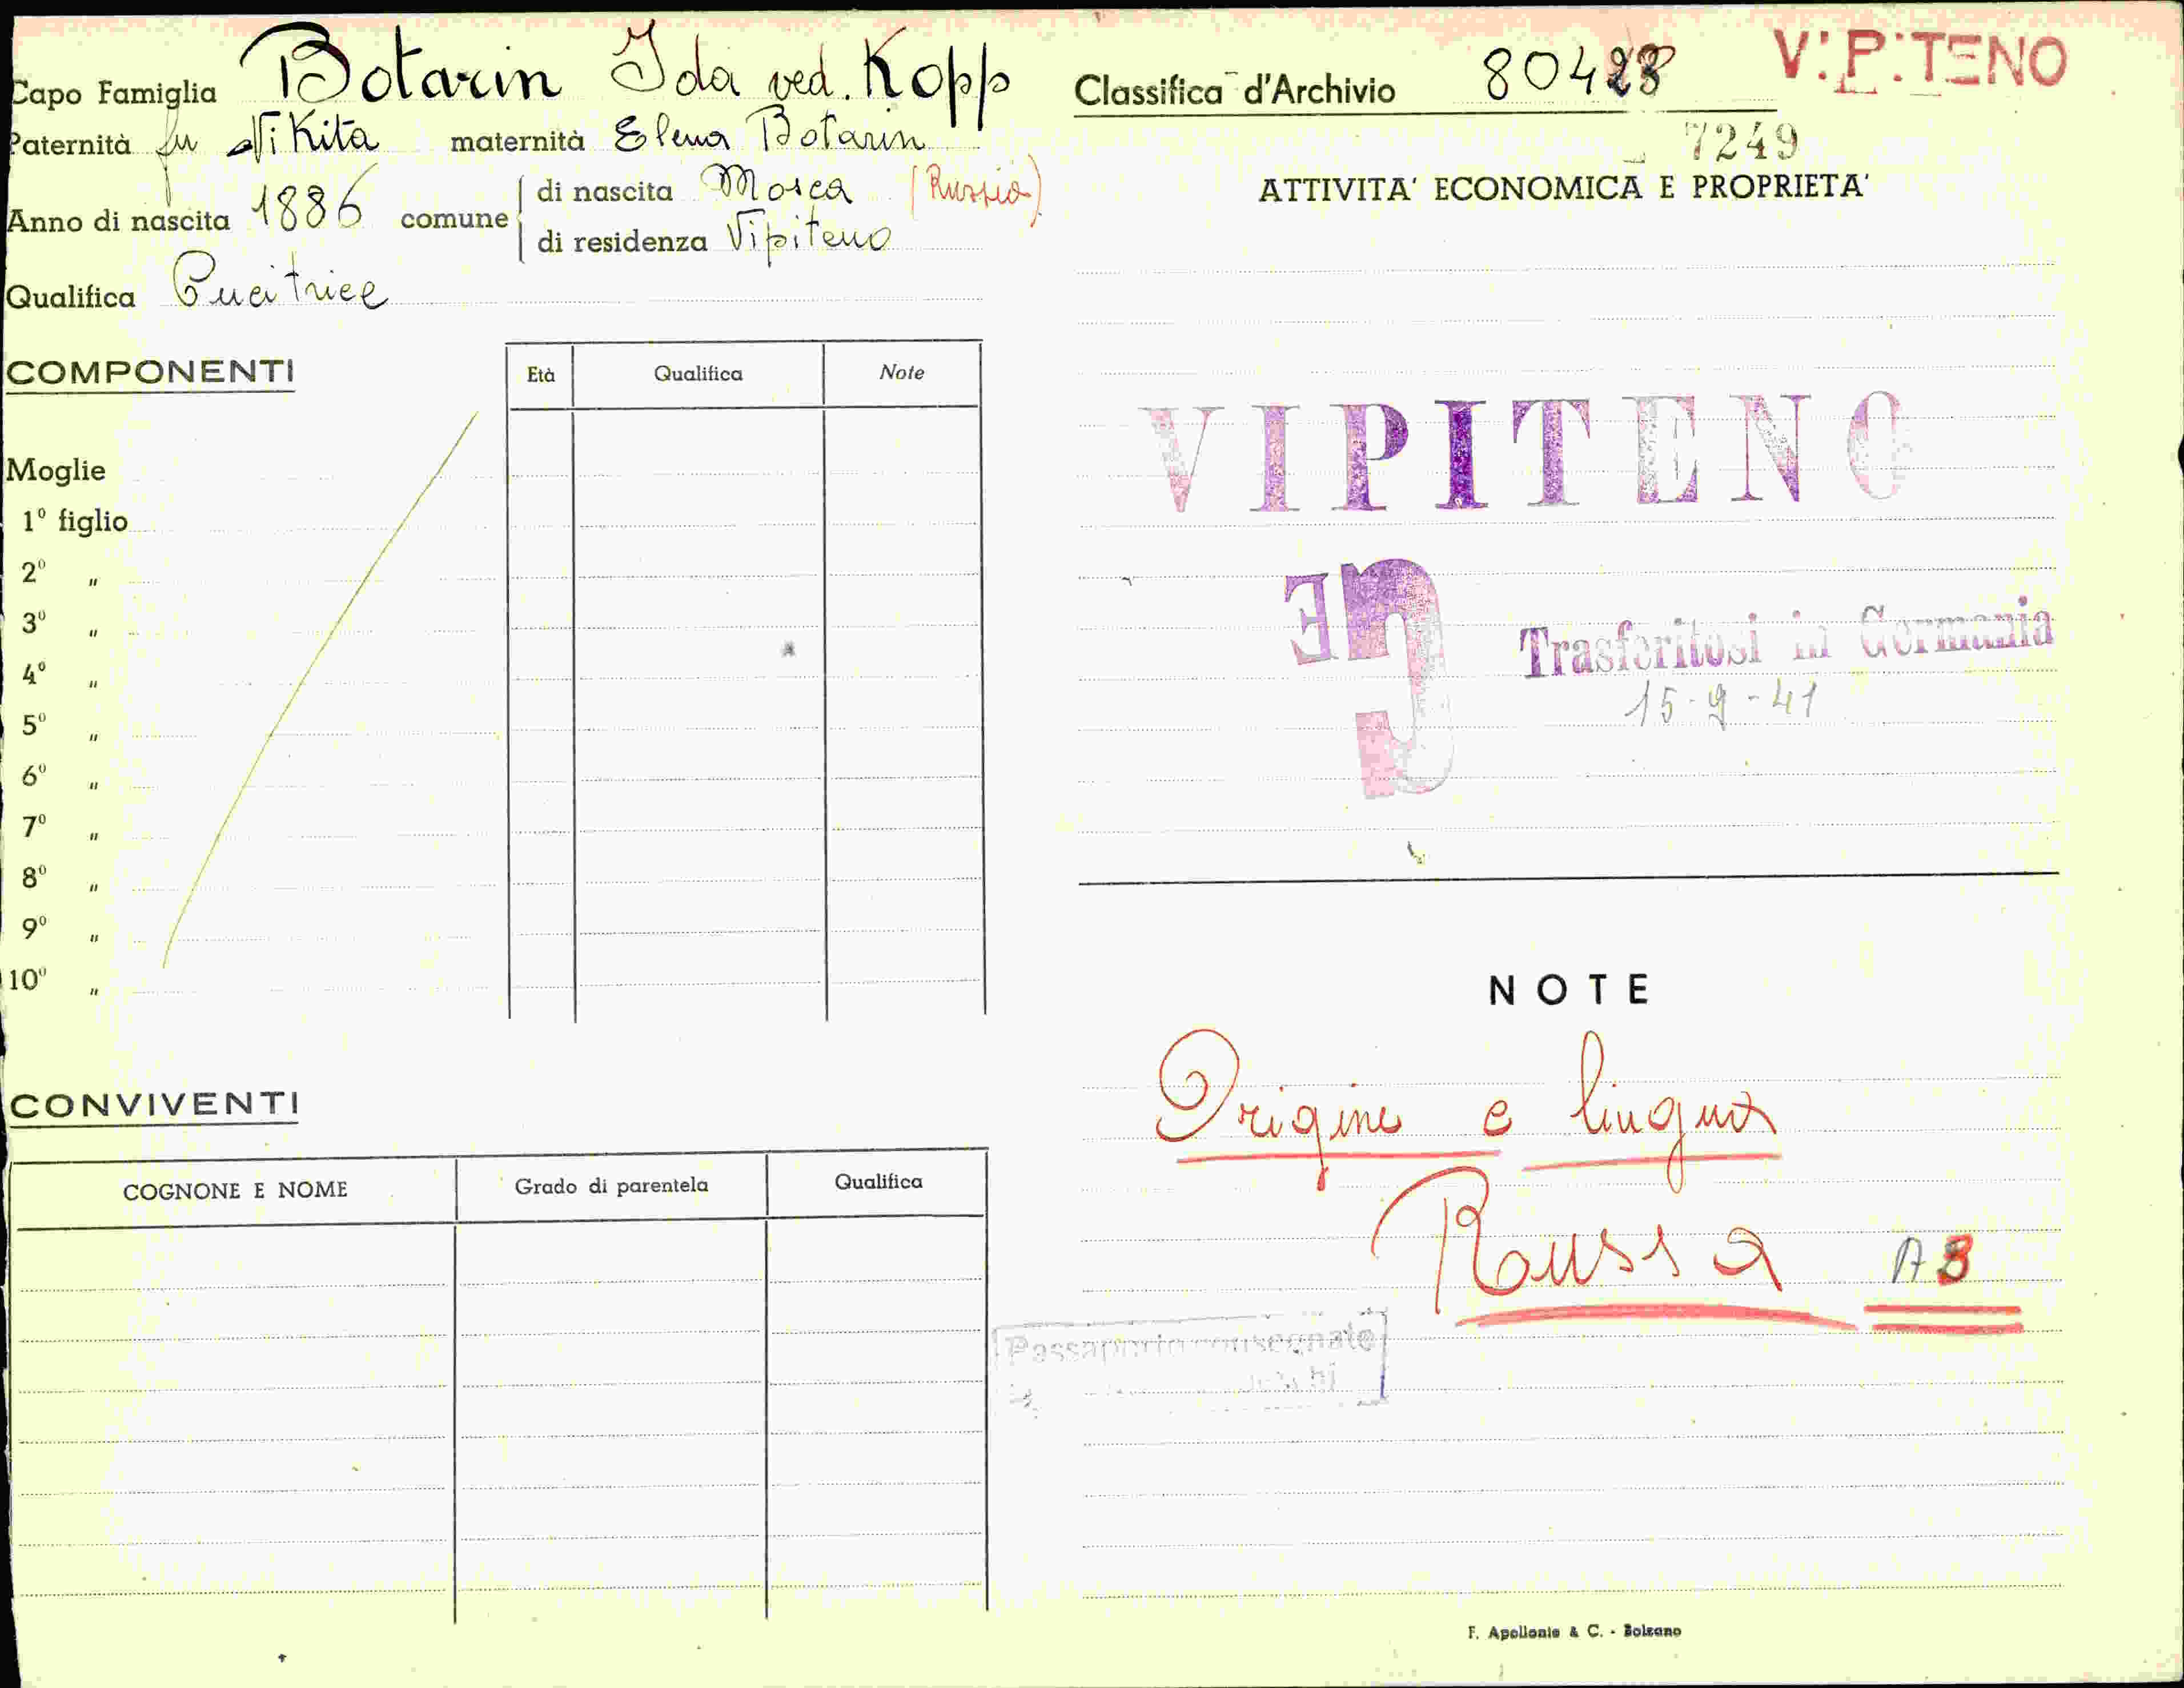 Capo Famiglia Botarin Ida ved. Kopp
Paternità fu Nikita maternità Elena Botarin
Anno di nascita 1886 comune di nascita Mosca (Russia)
di residenza Vipiteno
Qualifica Cucitrice
COMPONENTI
Età Qualifica Note
Moglie
1º figlio
2º "
3º "
4º "
5º "
6º "
7º "
8º "
9º "
10º "
CONVIVENTI
COGNONE E NOME Grado di parentela Qualifica
Classifica d'Archivio 80428 VIPITENO
7249
ATTIVITA' ECONOMICA E PROPRIETA'
VIPITENO
Trasferitosi in Germania
15-9-41
NOTE
Origine e lingua
Russa AB
Passaporto consegnato
F. Apollonio & C. - Bolzano